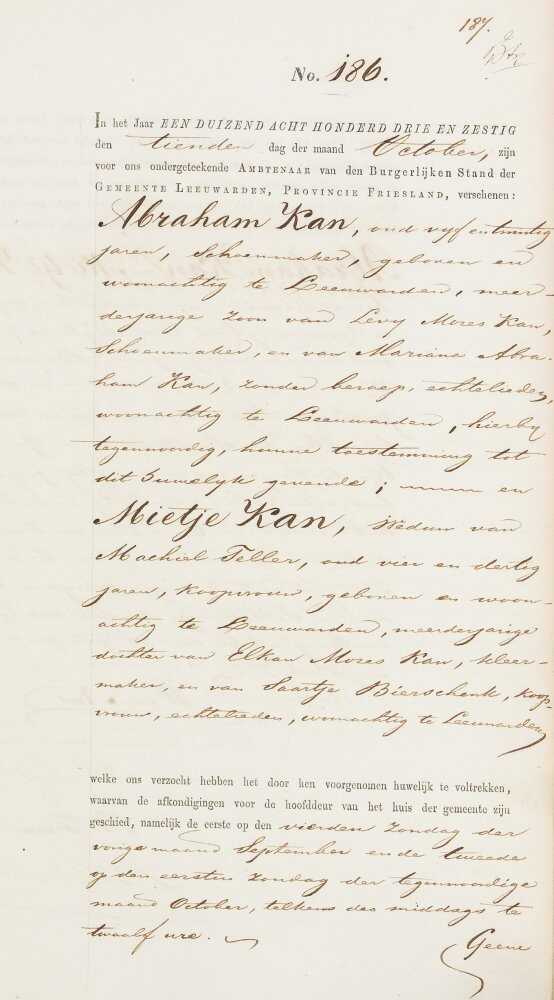 187.
No. 186.
In het Jaar EEN DUIZEND ACHT HONDERD DRIE EN ZESTIG
den tienden dag der maand October, zijn
voor ons ondergeteekende AMBTENAAR van den Burgerlijken Stand der
GEMEENTE LEEUWARDEN, PROVINCIE FRIESLAND, verschenen:
Abraham Kan, oud vyf en twintig
jaren, Schoenmaker, geboren en
woonachtig te Leeuwarden, meer-
derjarige zoon van Levy Mozes Kan,
Schoenmaker, en van Mariana Abra-
ham Kan, zonder beroep, echtelieden,
woonachtig te Leeuwarden, hierby
tegenwoordig, hunne toestemming tot
dit huwelyk gevende; en
Mietje Kan, Weduw van
Machiel Teller, oud vier en dertig
jaren, koopvrouw, geboren en woon-
achtig te Leeuwarden, meerderjarige
dochter van Elkan Mozes Kan, kleer-
maker, en van Saartje Bierschenk, koop-
vrouw, echtelieden, woonachtig te Leeuwarden,
welke ons verzocht hebben het door hen voorgenomen huwelijk te voltrekken,
waarvan de afkondigingen voor de hoofddeur van het huis der gemeente zijn
geschied, namelijk de eerste op den vierden Zondag der
vorige maand September en de tweede
op den eersten Zondag der tegenwoordige
maand October, telkens des middags te
twaalf ure.
Geene